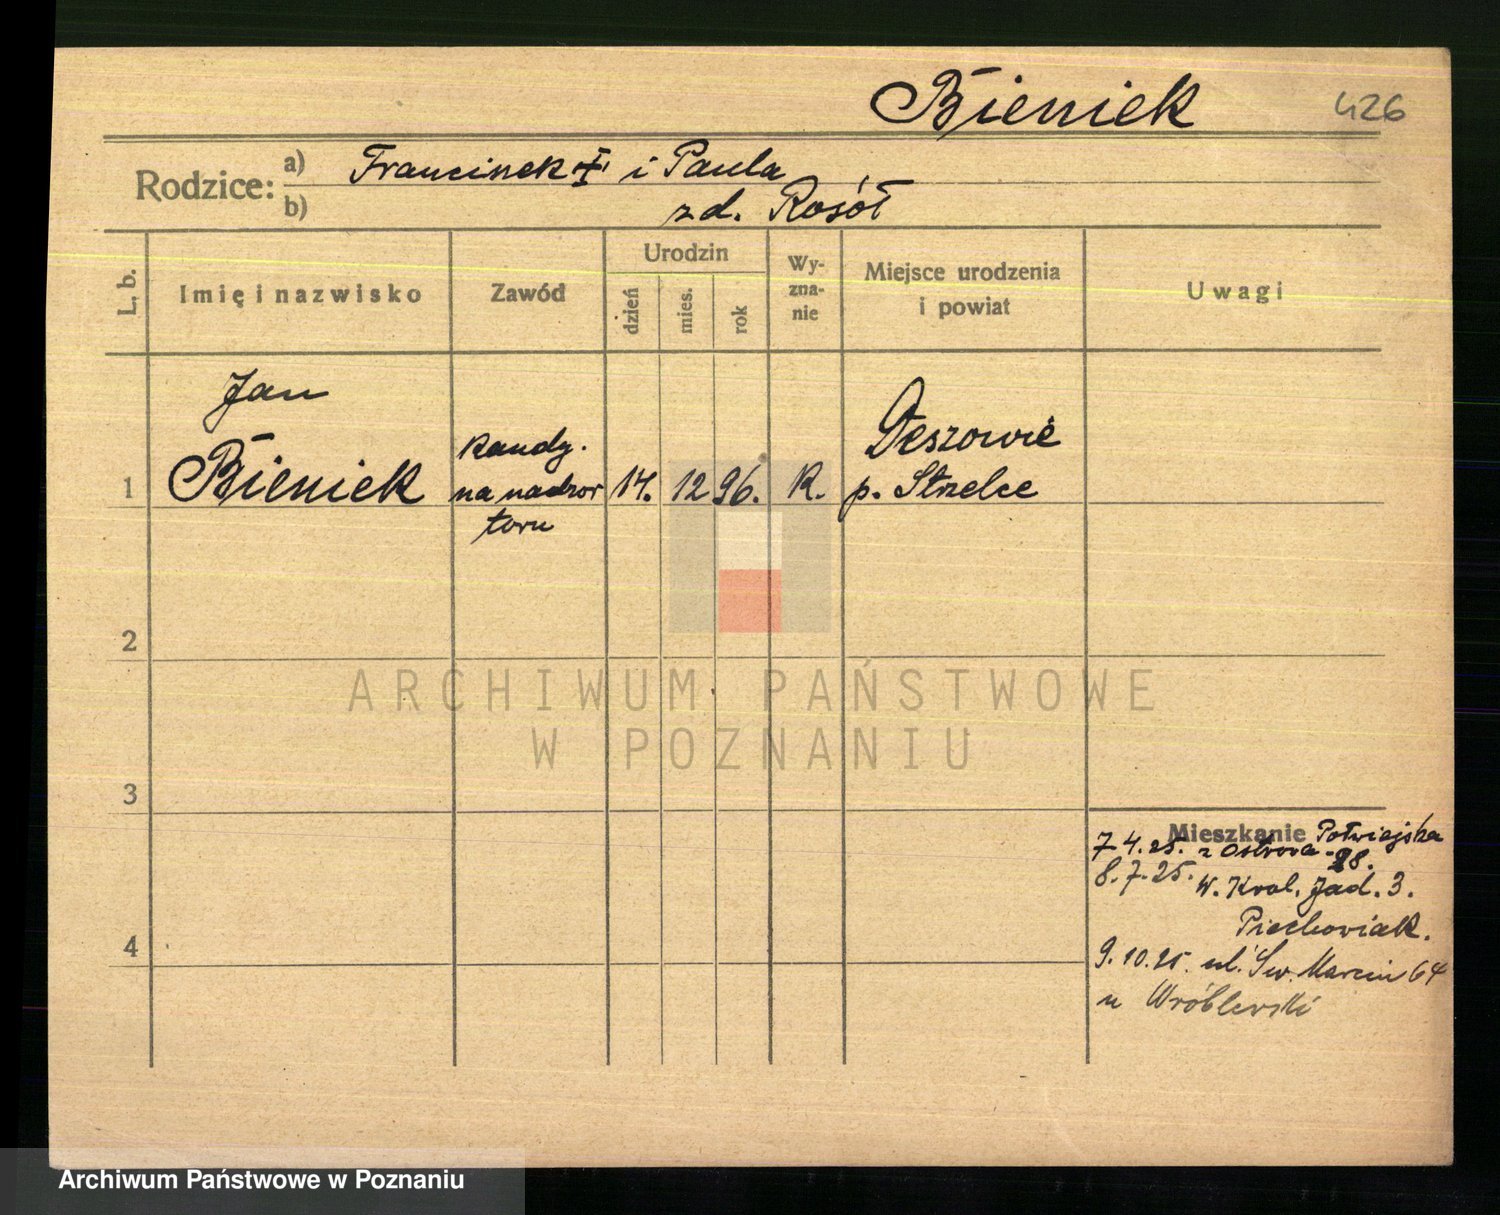 Bieniek 426
Rodzice: a) Franciszek i Paula
b) zd. Rosół
L. b.
Imię i nazwisko
Zawód
Urodzin
dzień
mies.
rok
Wy-
zna-
nie
Miejsce urodzenia
i powiat
Uwagi
Jan
1 Bieniek
kandy.
na nadzor
toru
14. 12 96. K.
Deszowic
p. Strzelce
2
3
4
ARCHIWUM PAŃSTWOWE
W POZNANIU
Mieszkanie Półwiejska
7.4.25. z Ostrowa 28.
8.7.25. W. Krol. Jad. 3.
Piechowiak.
9.10.25. ul. Św. Marcin 64
u Wróblewski
Archiwum Państwowe w Poznaniu